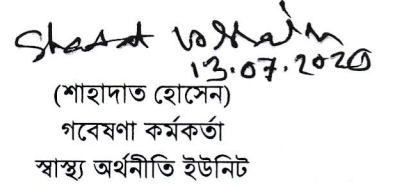 Shahadat Hossain
13.07.2020
(শাহাদাত হোসেন)
গবেষণা কর্মকর্তা
স্বাস্থ্য অর্থনীতি ইউনিট